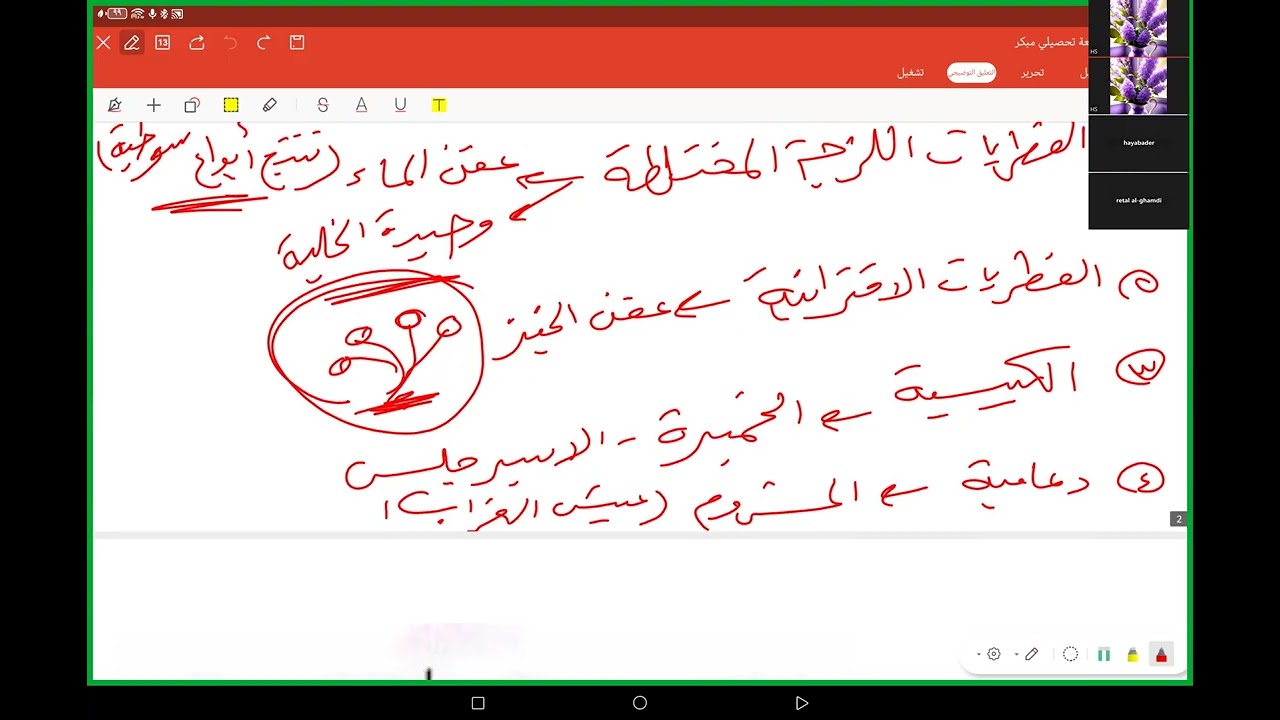 ٩٩
عة تحصيلي مبكر
13
تحرير
التعليق التوضيحي
تشغيل
HS
HS
hayabader
retal al-ghamdi
الفطريات اللزجة المختلطة ← عفن الماء (تنتج أبواغ سوطية)
وحيدة الخلية
٢ الفطريات الاقترانية ← عفن الخبز
٣ الكيسية ← الخميرة - الاسبرجلس
٤ دعامية ← المشروم (عيش الغراب)
2